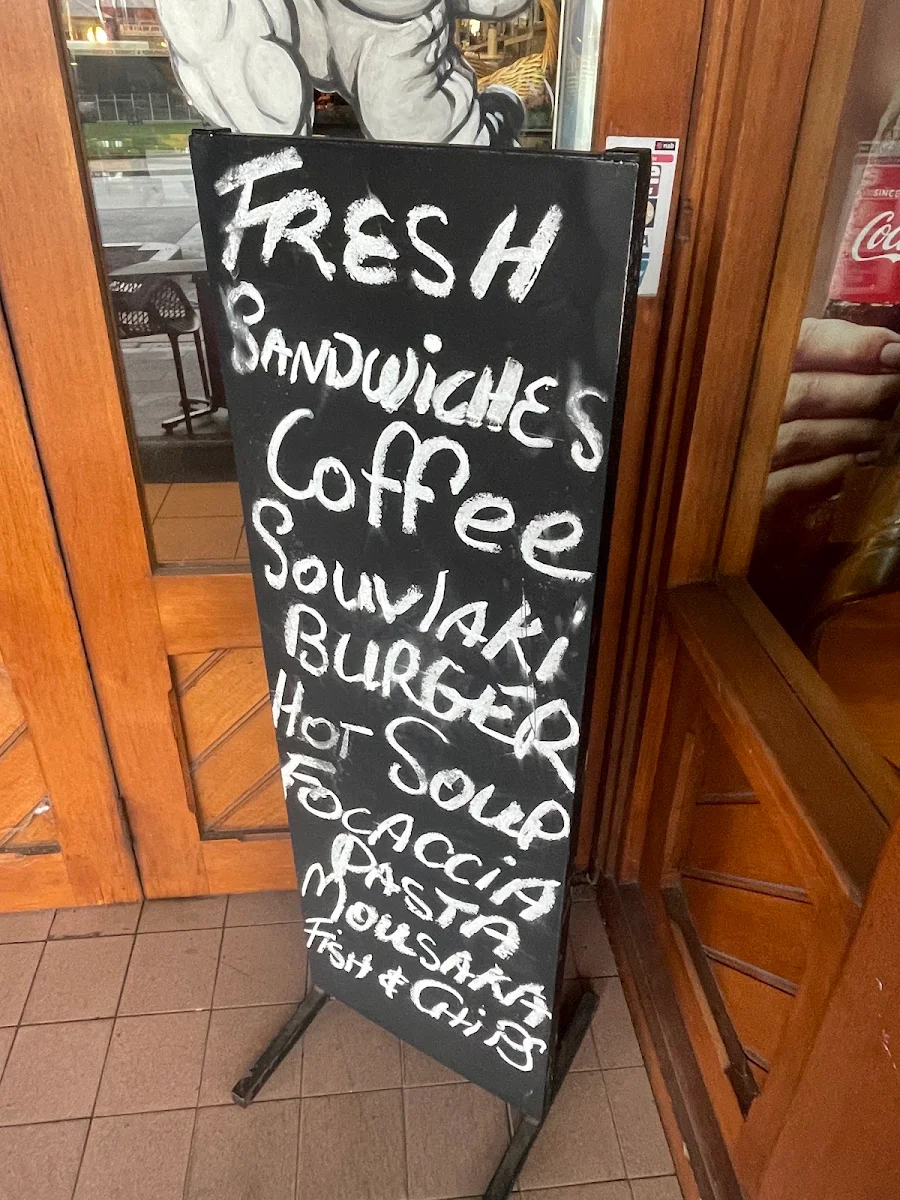 FRESH
SANDWiCHES
Coffee
SouvlAKi
BURGER
HOT SOUP
FOCACCiA
PASTA
MOUSAKA
FiSH & CHiPS
nab
SINCE